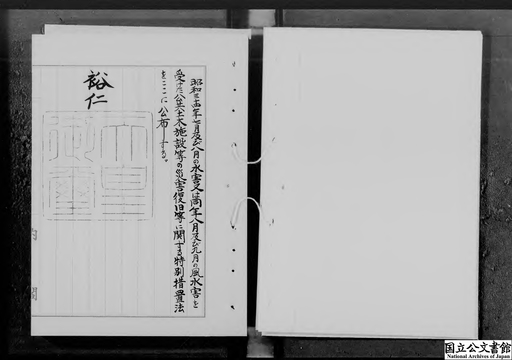 昭和三十四年七月及び八月の水害又は同年八月及び九月の風水害を
受けた公共土木施設等の災害復旧等に関する特別措置法
をここに公布する。
裕仁
天皇
御璽
国立公文書館
National Archives of Japan